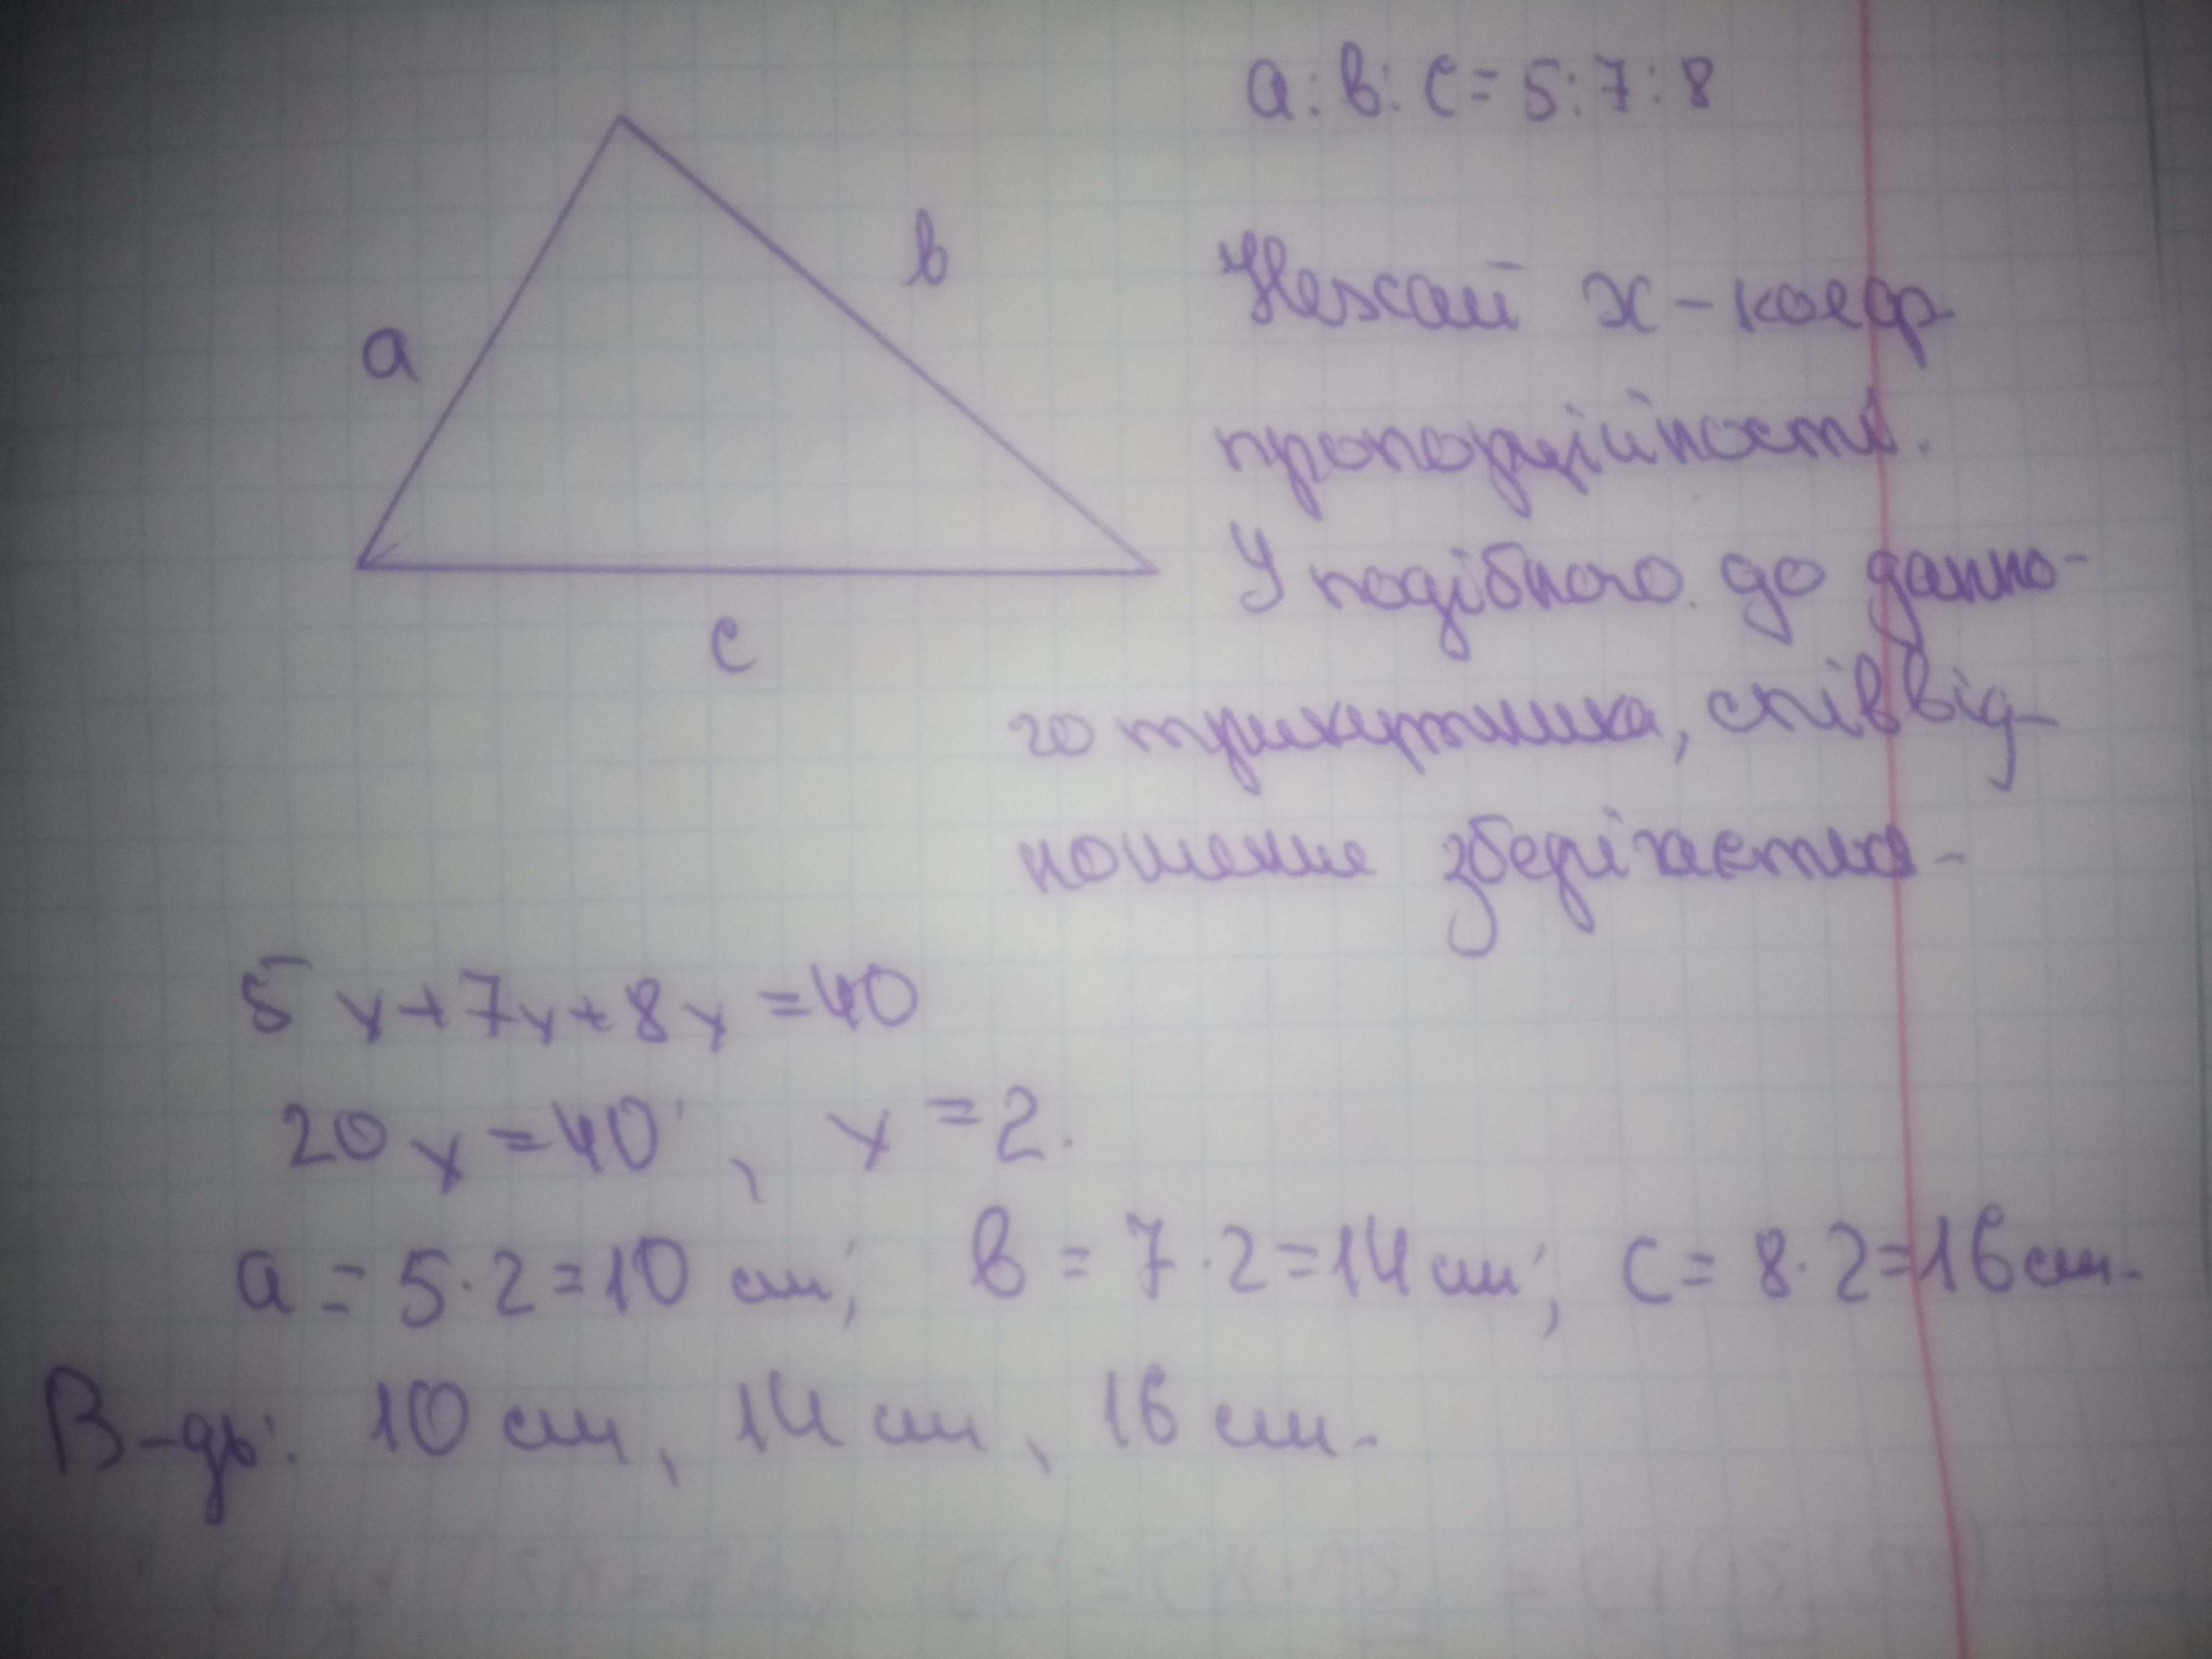 а : в : с = 5 : 7 : 8
Нехай х - коеф
пропорційності.
a
в
У подібного до данно-
c
го трикутника, співвід-
ношення зберігається.
5x+7x+8x=40
20x=40, x=2.
a=5·2=10 см; в=7·2=14 см; с=8·2=16 см.
В-дь: 10 см, 14 см, 16 см.